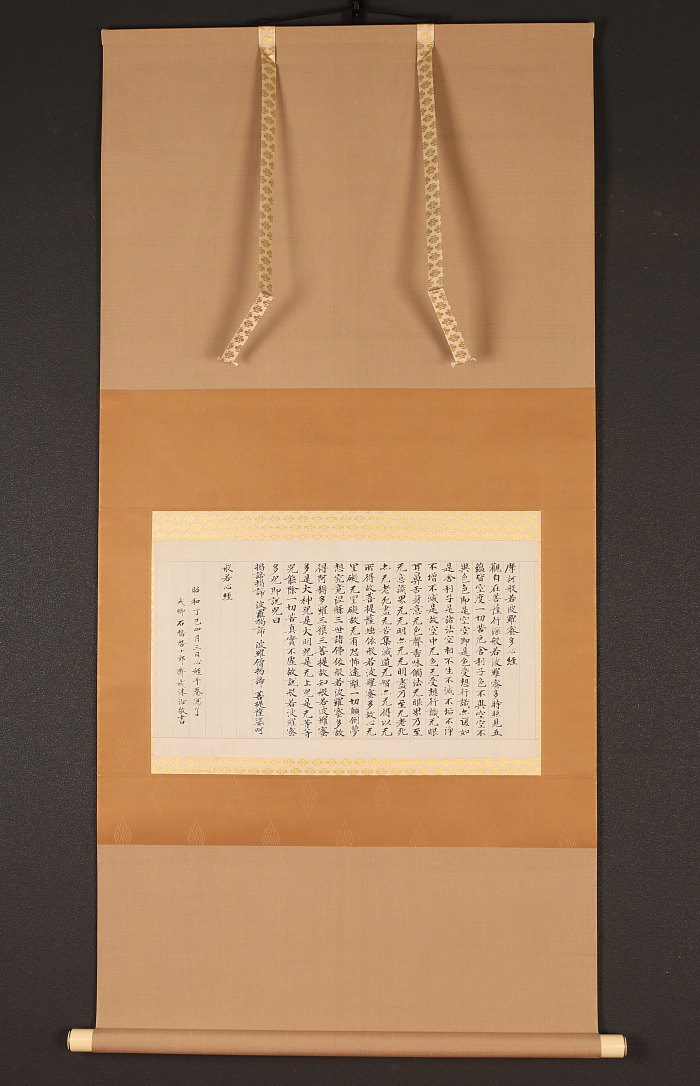 摩訶般若波羅蜜多心經
觀自在菩薩行深般若波羅蜜多時照見五
蘊皆空度一切苦厄舍利子色不異空空不
異色色即是空空即是色受想行識亦復如
是舍利子是諸法空相不生不滅不垢不淨
不增不減是故空中无色无受想行識无眼
耳鼻舌身意无色聲香味觸法无眼界乃至
无意識界无无明亦无无明盡乃至无老死
亦无老死盡无苦集滅道无智亦无得以无
所得故菩提薩埵依般若波羅蜜多故心无
罣礙无罣礙故无有恐怖遠離一切顛倒夢
想究竟涅槃三世諸佛依般若波羅蜜多故
得阿耨多羅三藐三菩提故知般若波羅蜜
多是大神咒是大明咒是无上咒是无等等
咒能除一切苦真實不虛故說般若波羅蜜
多咒即說咒曰
揭諦揭諦 波羅揭諦 波羅僧揭諦 菩提薩婆呵
般若心經
昭和丁巳四月三日心經千卷寫了
石橋啓十郎齋戒沐浴敬書